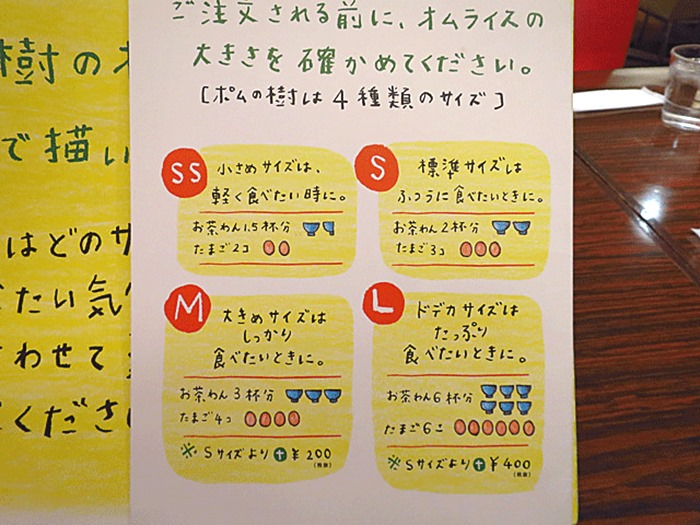 ご注文される前に、オムライスの
大きさを確かめてください。
[ポムの樹は4種類のサイズ]
SS 小さめサイズは、
軽く食べたい時に。
お茶わん1.5杯分
たまご2コ
S 標準サイズは
ふつうに食べたいときに。
お茶わん2杯分
たまご3コ
M 大きめサイズは
しっかり
食べたいときに。
お茶わん3杯分
たまご4コ
※Sサイズより+¥200
(税抜)
L ドデカサイズは
たっぷり
食べたいときに。
お茶わん6杯分
たまご6コ
※Sサイズより+¥400
(税抜)
樹の
で描い
はどのサ
たい気
わせて
ください